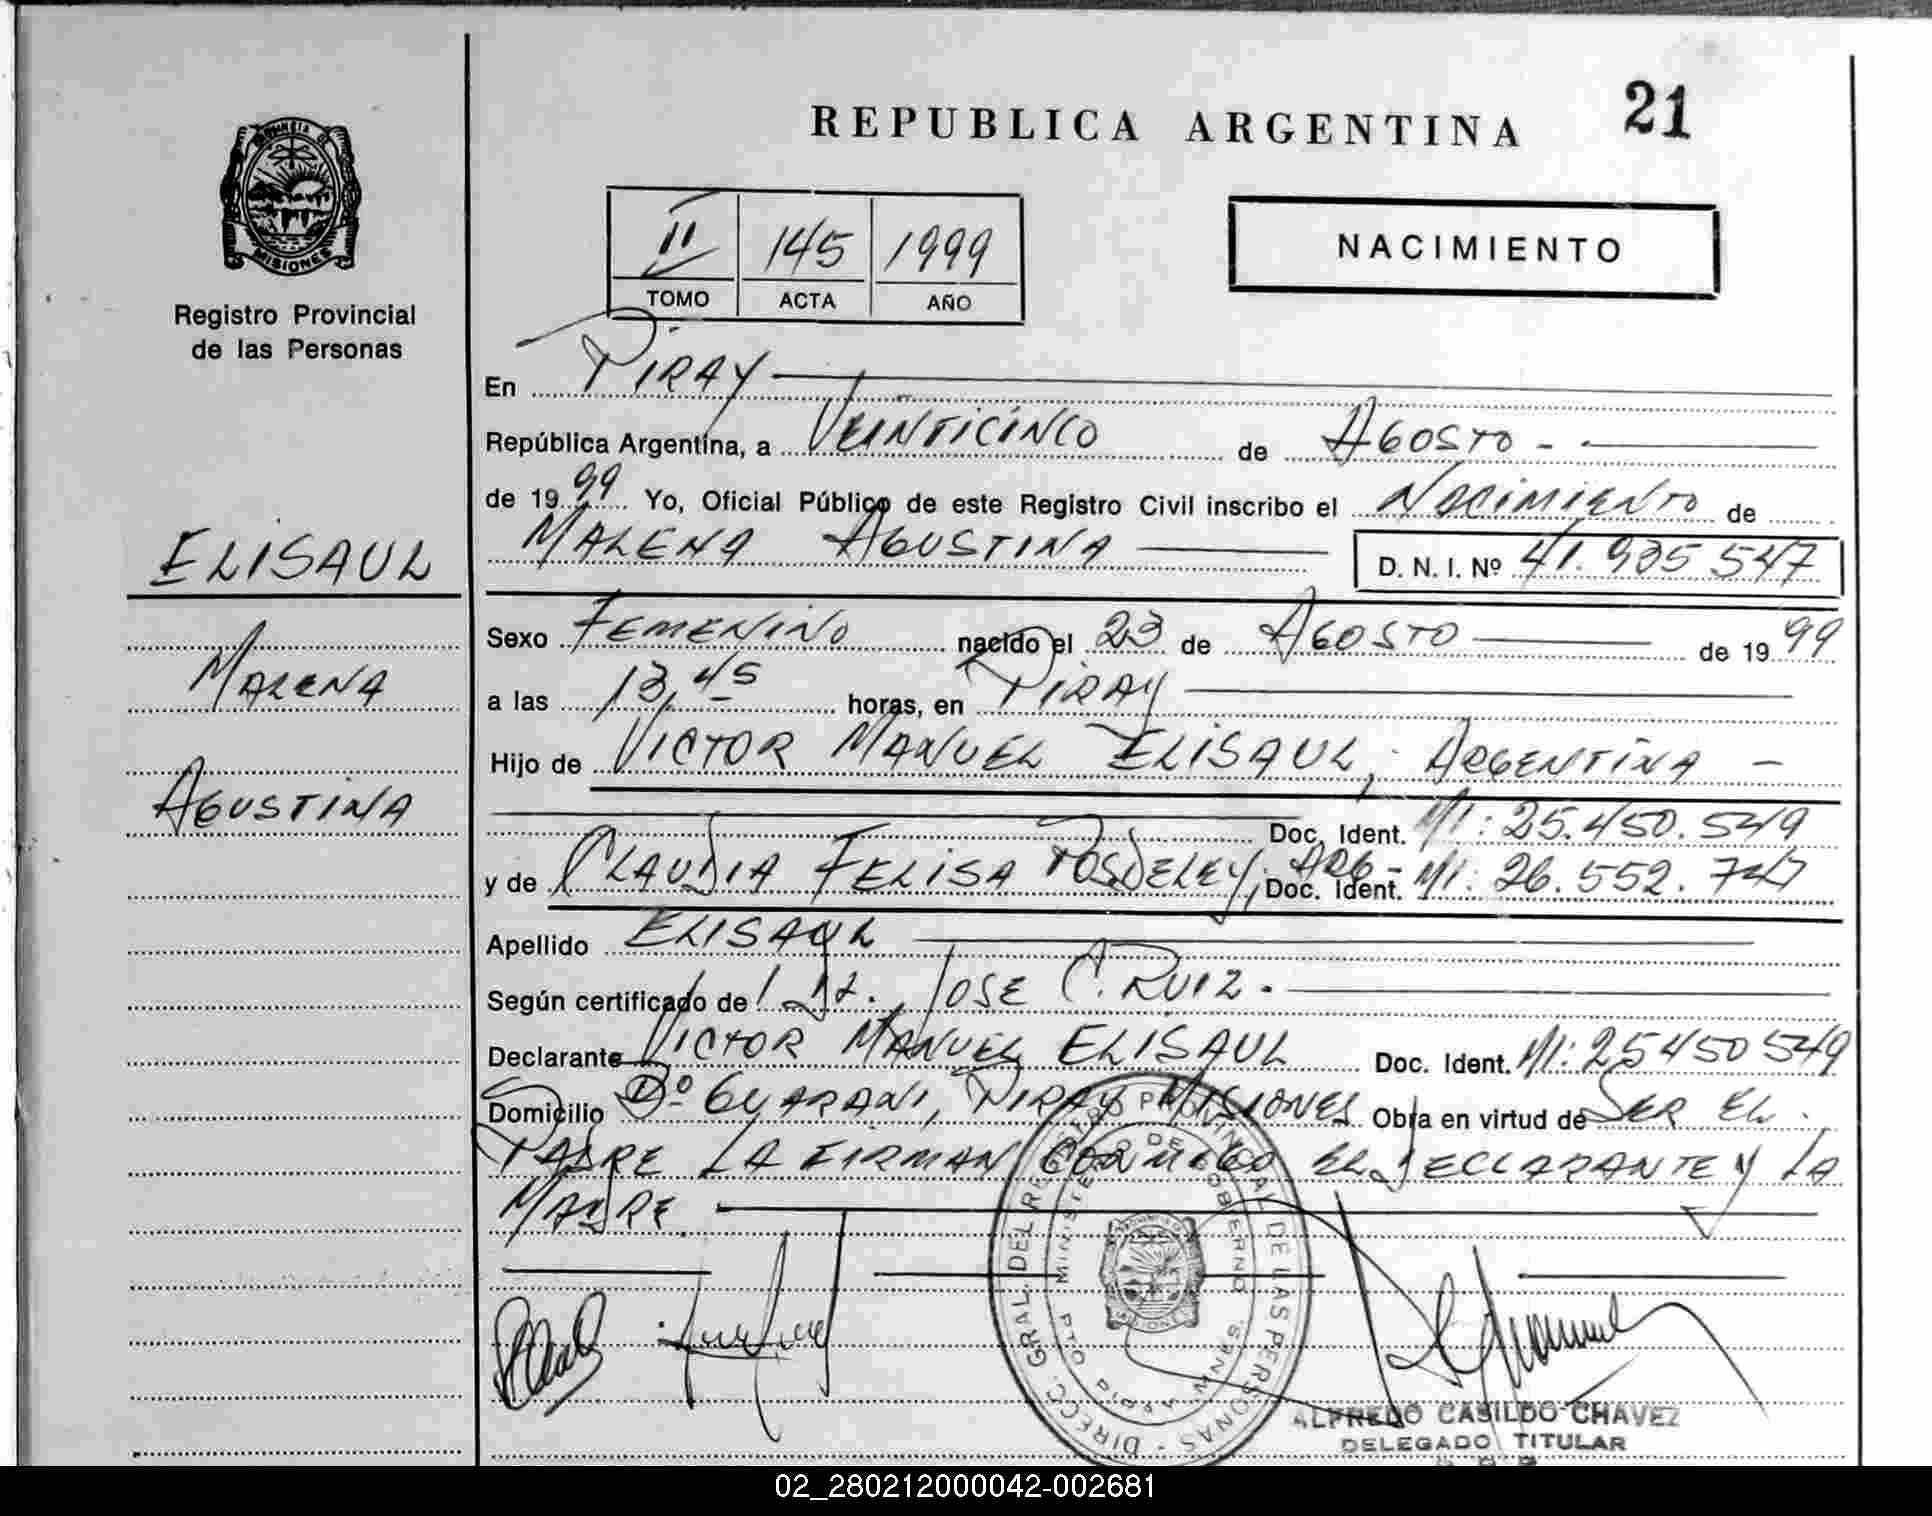 REPUBLICA ARGENTINA
21
PROVINCIA DE
MISIONES
Registro Provincial
de las Personas
II 145 1999
TOMO ACTA AÑO
NACIMIENTO
En PIRAY
República Argentina, a VEINTICINCO de AGOSTO -
de 1999 Yo, Oficial Público de este Registro Civil inscribo el NACIMIENTO de
MALENA AGUSTINA D. N. I. Nº 41.935 547
ELISAUL
MALENA
AGUSTINA
Sexo FEMENINO nacido el 23 de AGOSTO de 1999
a las 13,45 horas, en PIRAY
Hijo de VICTOR MANUEL ELISAUL, ARGENTINA -
Doc. Ident. MI: 25.450.549
y de CLAUDIA FELISA POSDELEY, ARG - Doc. Ident. MI: 26.552.747
Apellido ELISAUL
Según certificado de JOSE C. RUIZ.
Declarante VICTOR MANUEL ELISAUL Doc. Ident. MI: 25450549
Domicilio Bº GUARANI, PIRAY MISIONES Obra en virtud de SER EL
PADRE LA FIRMAN CONMIGO EL DECLARANTE Y LA
MADRE
DIRECC. GRAL. DEL REGISTRO PROVINCIAL DE LAS PERSONAS -
MINISTERIO DE GOBIERNO
ALFREDO CASILDO CHAVEZ
DELEGADO TITULAR
02_280212000042-002681